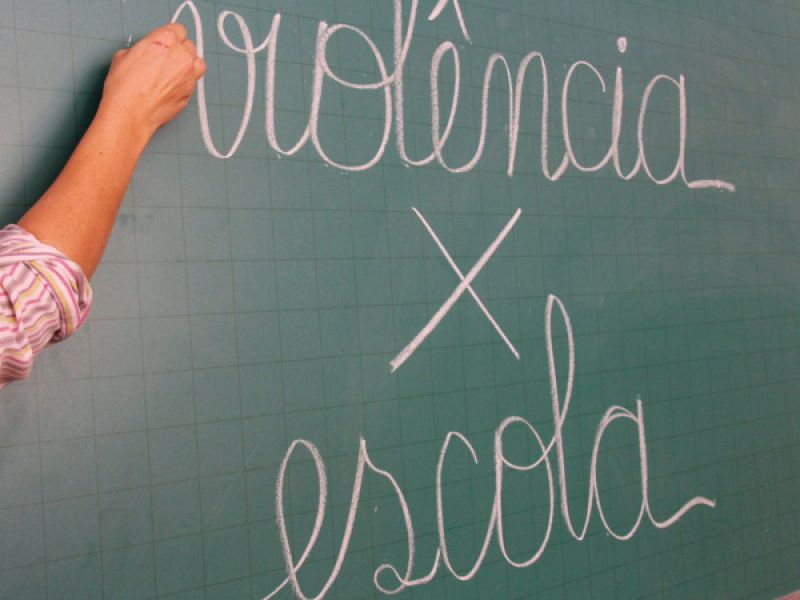 violência
X
escola